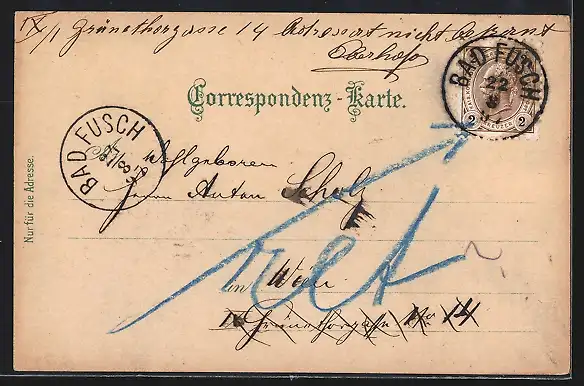 IX/1 Grünethorgasse 14 Adressat nicht bekannt
Correspondenz-Karte.
BAD FUSCH
22
8
97
2 KREUZER 2
BAD FUSCH
Wohlgeboren
Herrn Anton Scholz
Nur für die Adresse.
Ret
in Wien
IX Grünethorgasse No 14